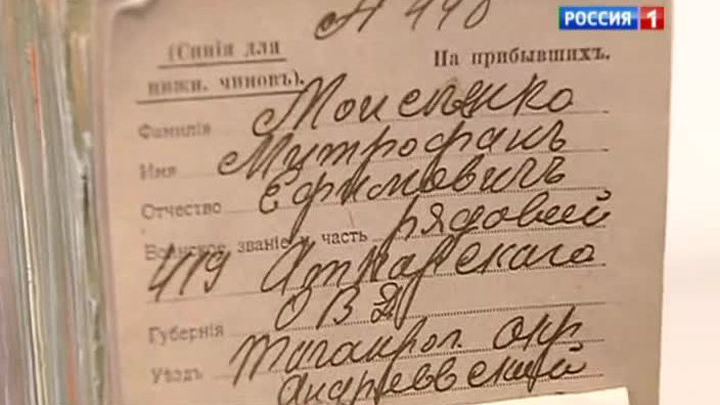 А 440
РОССИЯ 1
(Синія для
нижн. чиновъ).
На прибывшихъ.
Фамилія Моисеенко
Имя Митрофанъ
Отчество Ефимовичъ
Воинское званіе и часть рядовой
419 Аткарскаго
Губернія О В Д
Уѣздъ Таганрог. окр
Андреевский